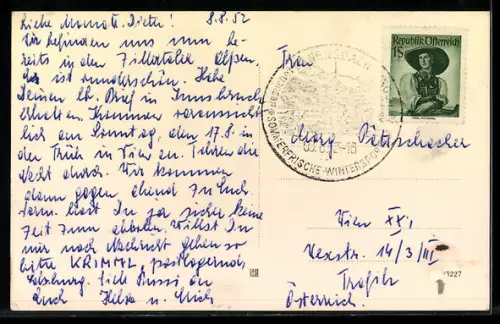 Liebe Mama u. Dieter! 8.8.52
Wir befinden uns nun be-
reits in den Zillertaler Alpen.
Es ist wunderschön. Habe
Deinen lb. Brief in Innsbruck
erhalten. Kommen voraussicht-
lich am Sonntag, den 17.8. in
der Früh in Wien an. Fahren die
Nacht durch. Wir kommen
dann gegen abend zu Euch
hast Du ja sicher keine
Zeit zum abholen. Willst Du
mir noch Nachricht geben so
bitte KRIMML, postlagernd
Salzburg. Viele Bussi an
Euch Helga u. Erich
Republik Österreich
1S
SOMMERFRISCHE · WINTERSPORT
Frau
Wien XXI,
14/3/III
Österreich.